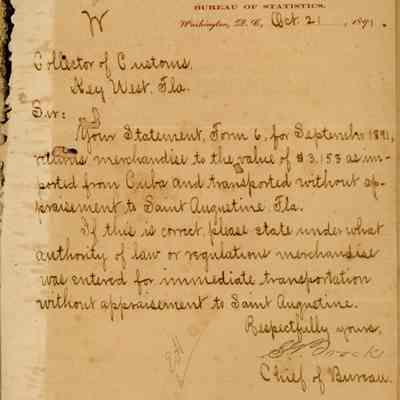 W
BUREAU OF STATISTICS.
Washington, D. C., Oct. 21, 1891.
Collector of Customs,
Key West, Fla.
Sir:
Your Statement, Form 6, for September 1891,
returns merchandise to the value of $3,153 as im-
ported from Cuba and transported without ap-
praisement to Saint Augustine, Fla.
If this is correct, please state under what
authority of law or regulations merchandise
was entered for immediate transportation
without appraisement to Saint Augustine.
Respectfully yours,
Brock
Chief of Bureau.